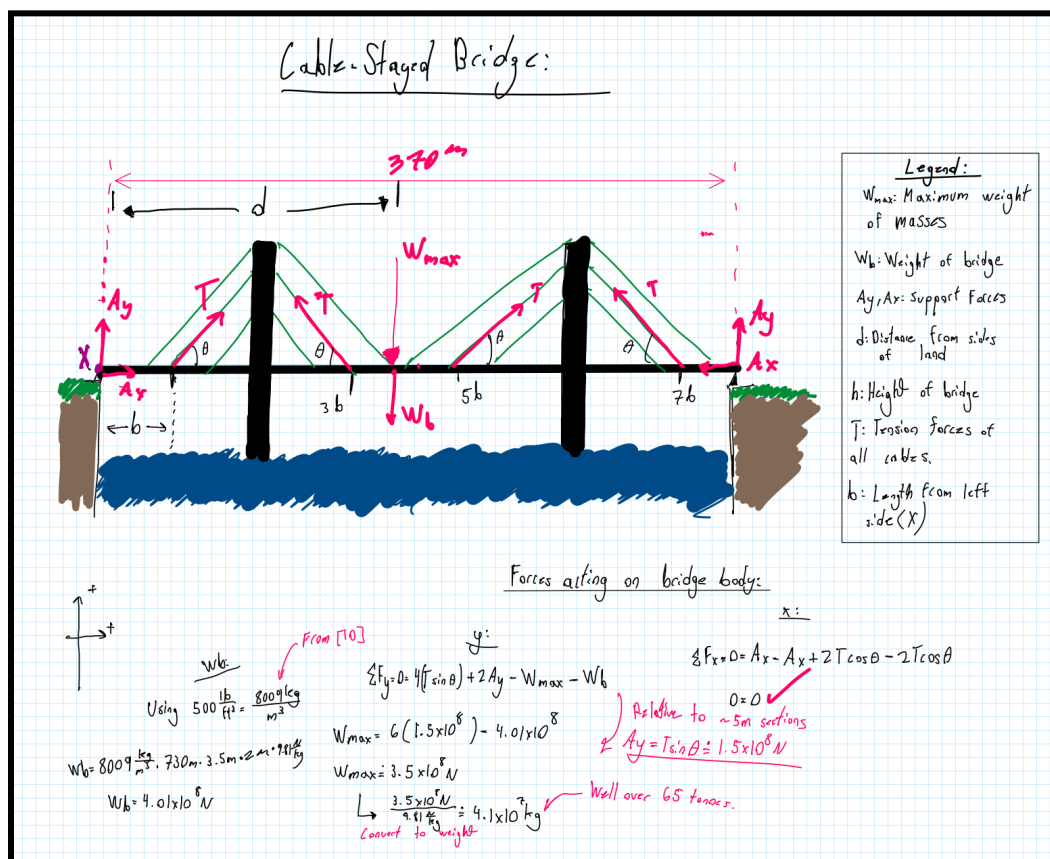 Cable-Stayed Bridge:
370 m
d
Wmax
Ay
T
T
T
T
Ay
X
θ
θ
θ
θ
Ax
Ax
3b
5b
7b
b
Wb
Legend:
Wmax: Maximum weight
of masses
Wb: Weight of bridge
Ay, Ax: Support Forces
d: Distance from sides
of land
h: Height of bridge
T: Tension forces of
all cables.
b: Length from left
side (X)
Forces acting on bridge body:
+
+
Wb:
From [10]
Using 500 lb/ft³ = 8009 kg/m³
Wb = 8009 kg/m³ · 730m · 3.5m · 2m · 9.81 N/kg
Wb = 4.01x10⁸ N
y:
ΣFy=0= 4(Tsinθ) + 2Ay - Wmax - Wb
Wmax = 6(1.5x10⁸) - 4.01x10⁸
Wmax ≐ 3.5x10⁸ N
↳ 3.5x10⁸ N / 9.81 N/kg ≐ 4.1x10⁷ kg
Convert to weight
Well over 65 tonnes.
x:
ΣFx=0= Ax - Ax + 2Tcosθ - 2Tcosθ
0=0
Relative to ~5m sections
Ay = Tsinθ ≐ 1.5x10⁸ N